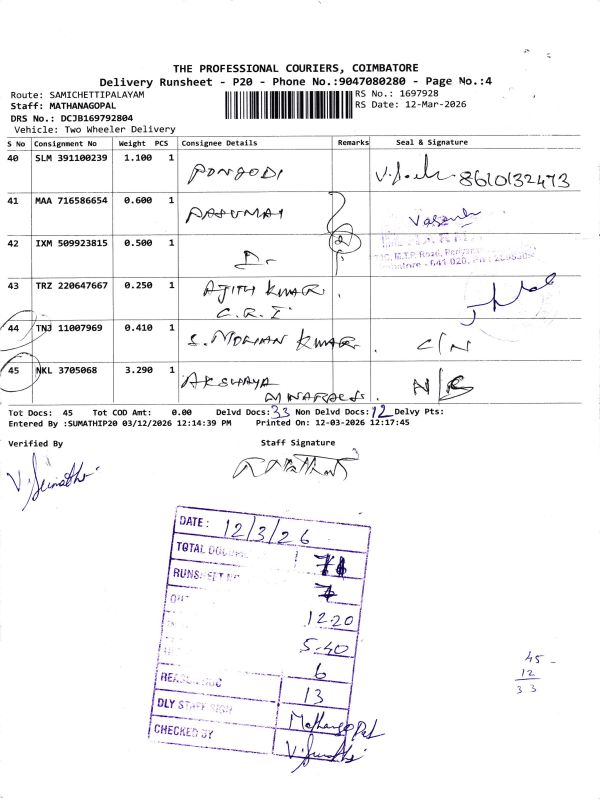 THE PROFESSIONAL COURIERS, COIMBATORE
Delivery Runsheet - P20 - Phone No.:9047080280 - Page No.:4
Route: SAMICHETTIPALAYAM
RS No.: 1697928
Staff: MATHANAGOPAL
RS Date: 12-Mar-2026
DRS No.: DCJB169792804
Vehicle: Two Wheeler Delivery
S No Consignment No Weight PCS Consignee Details Remarks Seal & Signature
40 SLM 391100239 1.100 1 PONGODI 8610132473
41 MAA 716586654 0.600 1 PASUMAI Vasanth
42 IXM 509923815 0.500 1 D. 2
43 TRZ 220647667 0.250 1 AJITH KUMAR.
C.R.I.
44 TNJ 11007969 0.410 1 S. MOHAN KUMAR. C/N
45 NKL 3705068 3.290 1 AKSHAYA
MINARALS. N/R
Tot Docs: 45 Tot COD Amt: 0.00 Delvd Docs: 33 Non Delvd Docs: 12 Delvy Pts:
Entered By :SUMATHIP20 03/12/2026 12:14:39 PM Printed On: 12-03-2026 12:17:45
Verified By Staff Signature
DATE: 12/3/26
TOTAL
RUNSHEET
12-20
5-40
6
13
DLY STAFF SIGN Mathangopal
CHECKED BY
45
12
33